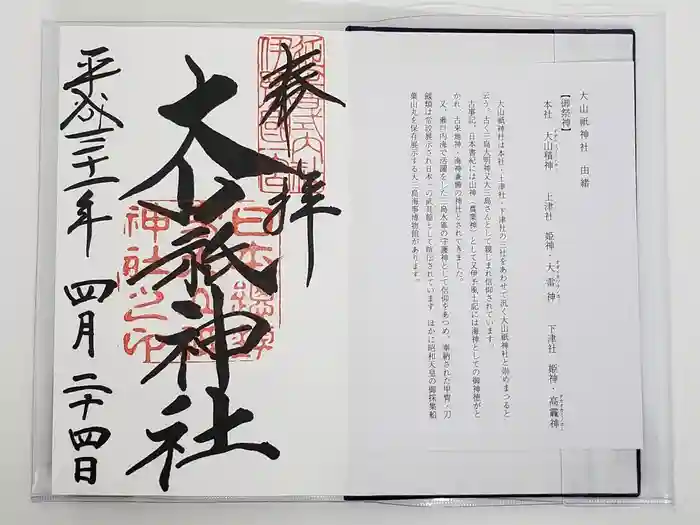 大山祇神社 由緒
【御祭神】
本社 大山積神 上津社 姫神・大雷神 下津社 姫神・高龗神
大山祇神社は本社・上津社・下津社の三社をあわせて広く大山祇神社と崇めまつると
云う。古く三島大明神又大三島さんとして親しまれ信仰されています。
古事記、日本書紀には山神(農業神)として又伊予風土記には海神としての御神徳がと
かれ、古来地神・海神兼備の神社とされてきました。
又、瀬戸内海で活躍をした三島水軍の守護神として信仰をあつめ、奉納された甲冑・刀
鏡類は常設展示され日本一の武具館として宣伝されています。ほかに昭和天皇の御採集船
葉山丸を保存展示する大三島海事博物館があります。
奉拝
大山祇神社
平成三十一年 四月 二十四日
日本總鎮
神社之印